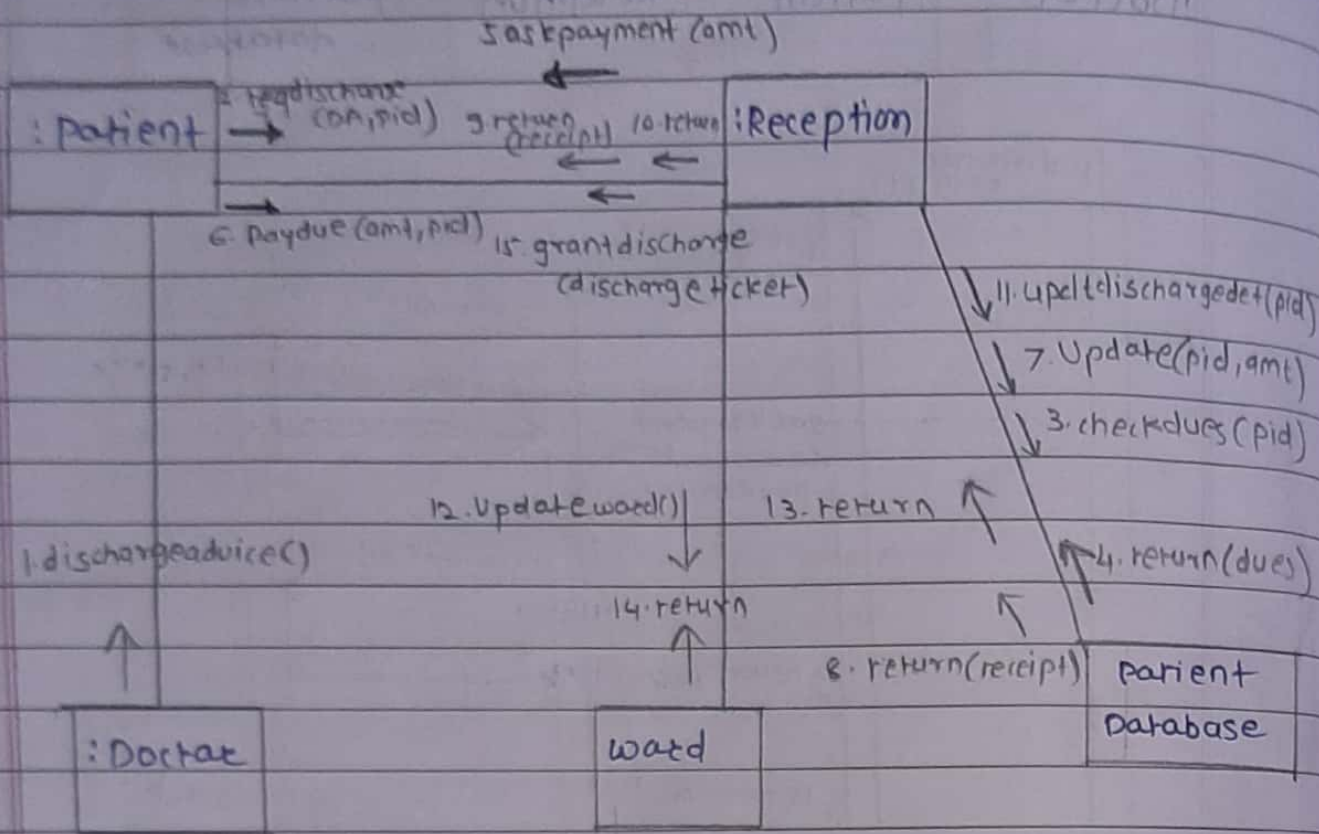 5 askpayment (amt)
2. reqdischarge
(DA, pid)
9 return
(receipt)
10. return
: Patient
:Reception
6. Paydue (amt, pid)
15. grantdischarge
(dischargeticket)
11. updtdischargedet(pid)
7. Update(pid, amt)
3. checkdues (pid)
12. Updateward()
13. return
1. dischargeadvice()
4. return(dues)
14. return
8. return(receipt)
Patient
Database
: Doctor
ward